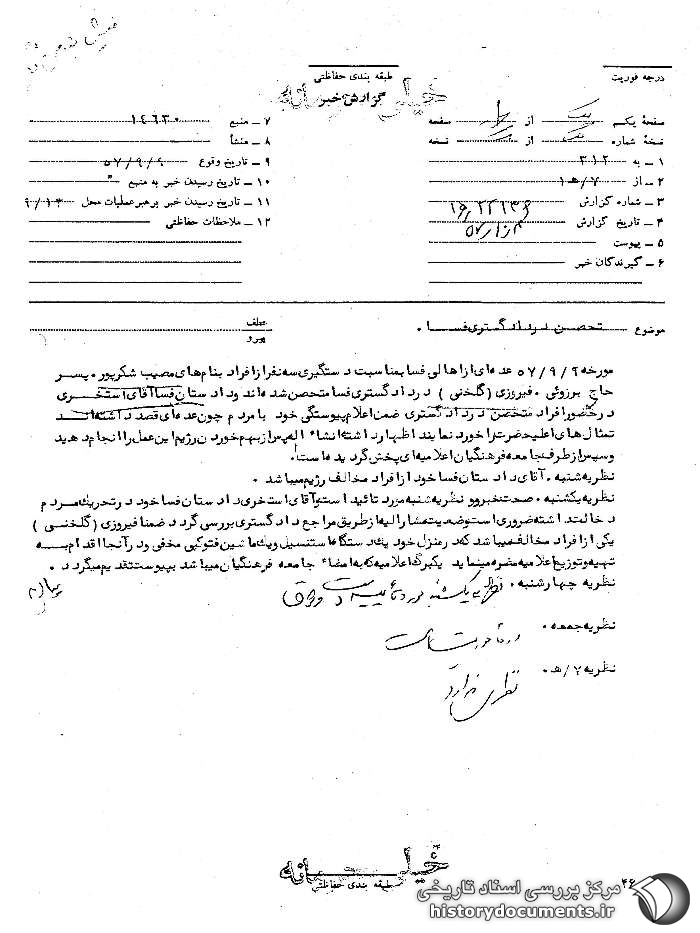 درجه فوریت
طبقه بندی حفاظتی
گزارش خبر
خیلی محرمانه
صفحهٔ یکم از صفحه
نسخهٔ شماره از نسخه
۱ ـ به ۳۱۲
۲ ـ از ۷/هـ۱
۳ ـ شماره گزارش
۴ ـ تاریخ گزارش
۵ ـ پیوست
۶ ـ گیرندگان خبر
۷ ـ منبع ۱۴۶۳۰
۸ ـ منشأ
۹ ـ تاریخ وقوع ۵۷/۹/۹
۱۰ ـ تاریخ رسیدن خبر به منبع
۱۱ ـ تاریخ رسیدن خبر برهبر عملیات محل ۹/۱۳
۱۲ ـ ملاحظات حفاظتی
موضوع تحصن در دادگستری فسا.
عطف
پیرو
مورخه ۵۷/۹/۹ عده‌ای از اهالی فسا بمناسبت دستگیری سه نفر از افراد بنام‌های مصیب شکرپور. پسر
حاج برزوئی . فیروزی (گلخنی) در دادگستری فسا متحصن شده‌اند و دادستان فسا آقای استخری
در حضور افراد متحصن در دادگستری ضمن اعلام پیوستگی خود با مردم چون عده‌ای قصد داشته‌اند
تمثال های اعلیحضرت را خورد نمایند اظهار داشته انشاءاله پس از بهم خوردن رژیم این عمل را انجام دهید
و سپس از طرف جامعه فرهنگیان اعلامیه‌ای پخش گردیده است.
نظریه شنبه . آقای دادستان فسا خود از افراد مخالف رژیم میباشد .
نظریه یکشنبه . صحت خبر و نظریه شنبه مورد تائید است و آقای استخری دادستان فسا خود در تحریک مردم
دخالت داشته ضروری است وضعیت مشارالیه از طریق مراجع دادگستری بررسی گردد ضمنا فیروزی (گلخنی)
یکی از افراد مخالف میباشد که در منزل خود یک دستگاه استنسیل و یک ماشین فتوکپی مخفی و در آنجا اقدام به
تهیه و توزیع اعلامیه مضره مینماید یکبرگ اعلامیه که به امضاء جامعه فرهنگیان میباشد بپیوست تقدیم میگردد .
نظریه چهارشنبه . نظریه یکشنبه مورد تأیید است
نظریه جمعه .
نظریه ۷/هـ . نظری ندارد
خیلی محرمانه
طبقه بندی حفاظتی
۴۶
مرکز بررسی اسناد تاریخی
historydocuments.ir